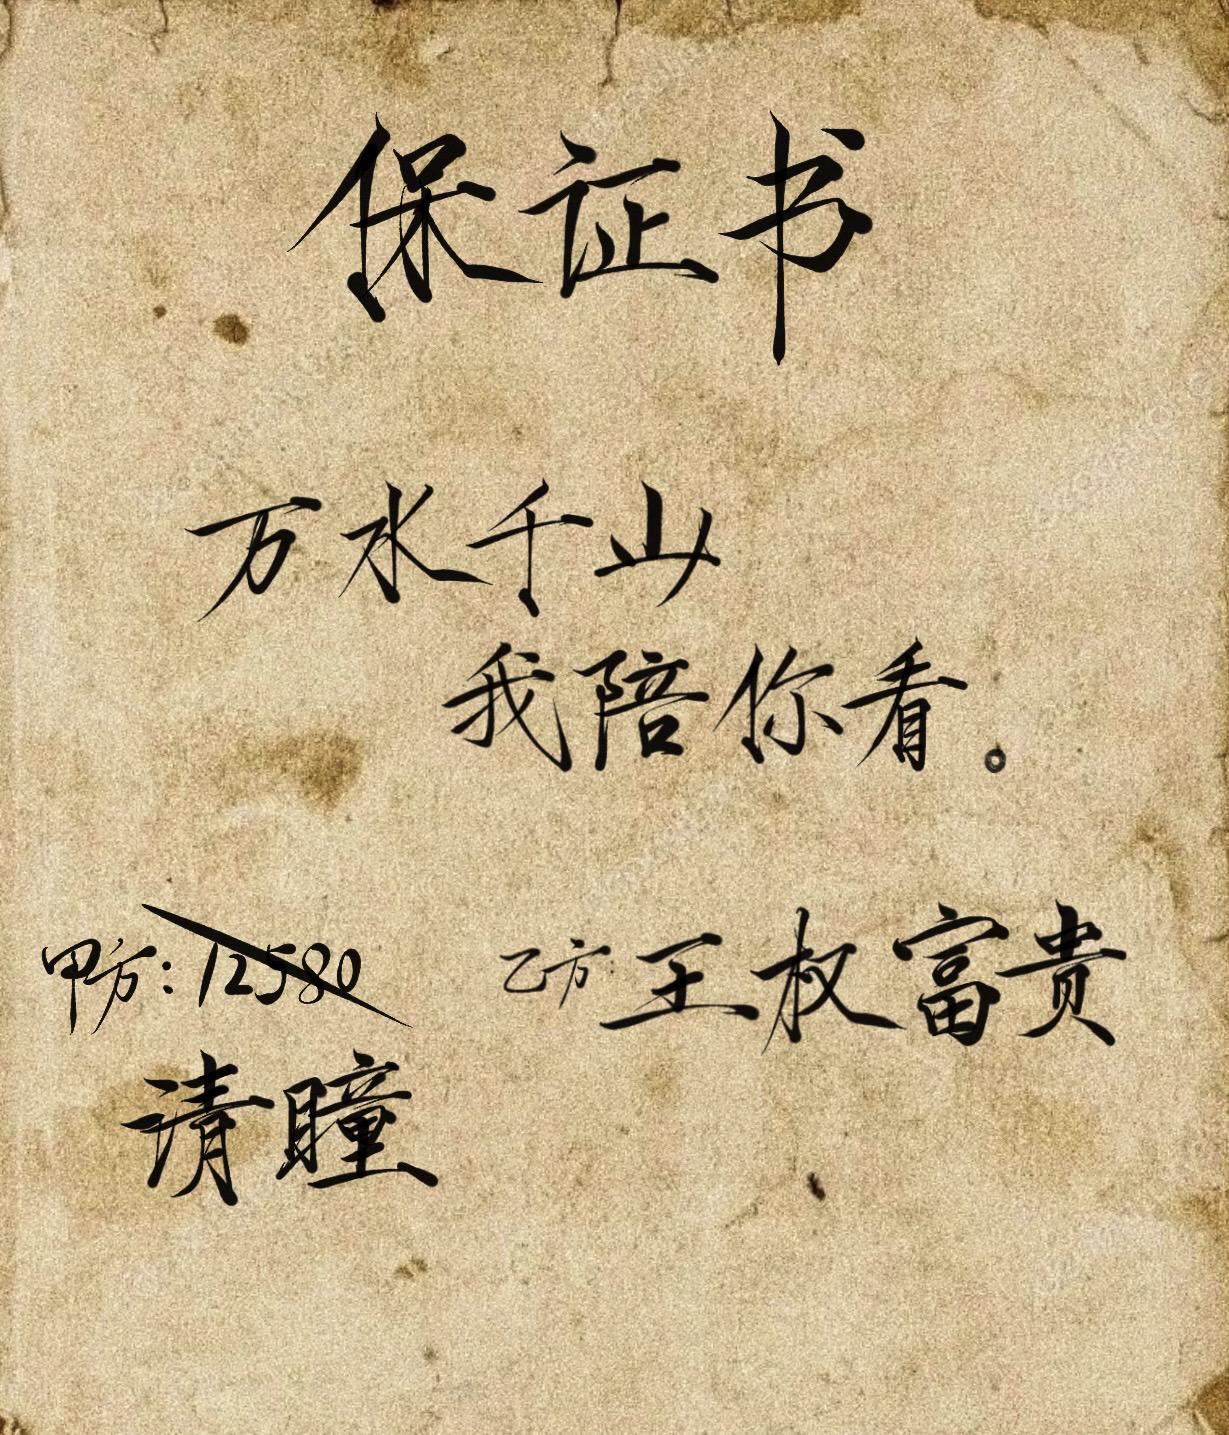 保证书
万水千山
我陪你看。
甲方：12580 乙方：王权富贵
清瞳